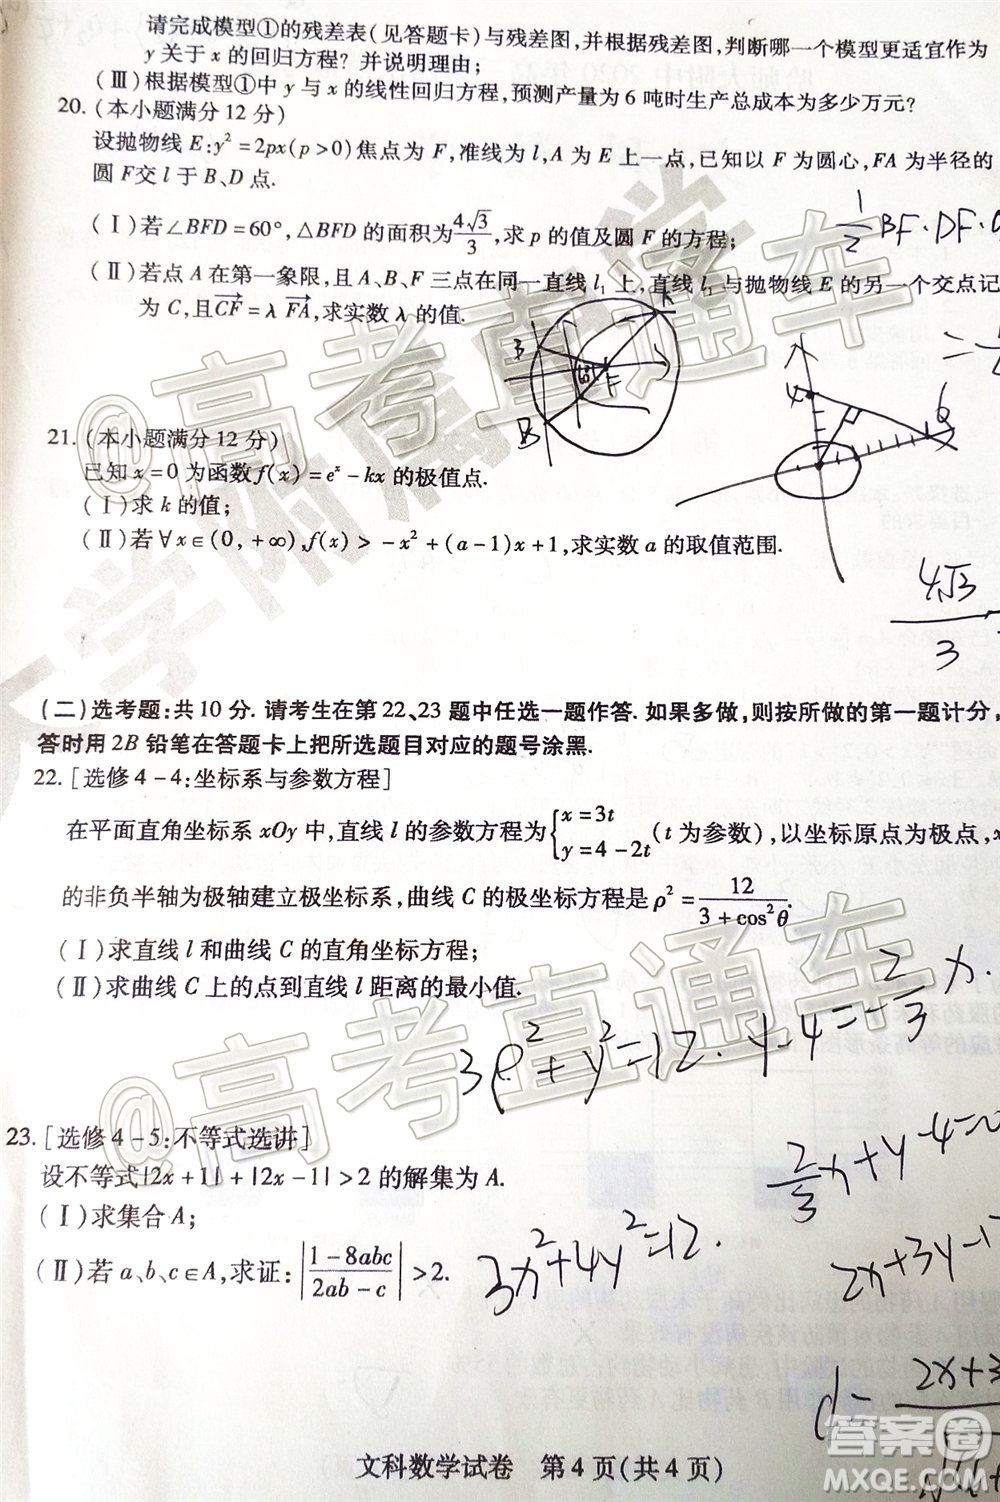 请完成模型①的残差表(见答题卡)与残差图,并根据残差图,判断哪一个模型更适宜作为
y 关于 x 的回归方程?并说明理由;
(Ⅲ)根据模型①中 y 与 x 的线性回归方程,预测产量为 6 吨时生产总成本为多少万元?
20. (本小题满分 12 分)
设抛物线 E:y²=2px(p>0)焦点为 F,准线为 l,A 为 E 上一点,已知以 F 为圆心,FA 为半径的
圆 F交 l 于 B、D 点.
(Ⅰ)若∠BFD=60°,△BFD 的面积为4√3/3,求 p 的值及圆 F 的方程;
(Ⅱ)若点 A 在第一象限,且 A、B、F 三点在同一直线 l₁ 上,直线 l₁ 与抛物线 E 的另一个交点记
为 C,且CF=λFA,求实数 λ 的值.
1/2 BF·DF·
F
B
4
6
21. (本小题满分 12 分)
已知 x=0 为函数 f(x)=eˣ-kx 的极值点.
(Ⅰ)求 k 的值;
(Ⅱ)若 ∀x∈(0,+∞),f(x)>-x²+(a-1)x+1,求实数 a 的取值范围.
4√3/3
(二)选考题:共 10 分. 请考生在第 22、23 题中任选一题作答. 如果多做,则按所做的第一题计分,
答时用 2B 铅笔在答题卡上把所选题目对应的题号涂黑.
22. [选修 4-4:坐标系与参数方程]
在平面直角坐标系 xOy 中,直线 l 的参数方程为{x=3t y=4-2t(t 为参数),以坐标原点为极点,x
的非负半轴为极轴建立极坐标系,曲线 C 的极坐标方程是 ρ²=12/(3+cos²θ).
(Ⅰ)求直线 l 和曲线 C 的直角坐标方程;
(Ⅱ)求曲线 C 上的点到直线 l 距离的最小值.
3ρ²+y²=12. y-4=-2/3 x.
23. [选修 4-5:不等式选讲]
设不等式|2x+1|+|2x-1|>2 的解集为 A.
(Ⅰ)求集合 A;
(Ⅱ)若 a、b、c∈A,求证:|(1-8abc)/(2ab-c)|>2.
2/3 x+y-4=0
3x²+4y²=12.
2x+3y-1
d= 2x+3
文科数学试卷 第 4 页(共 4 页)
@高考直通车
@高考直通车
答案圈
MXQE.COM